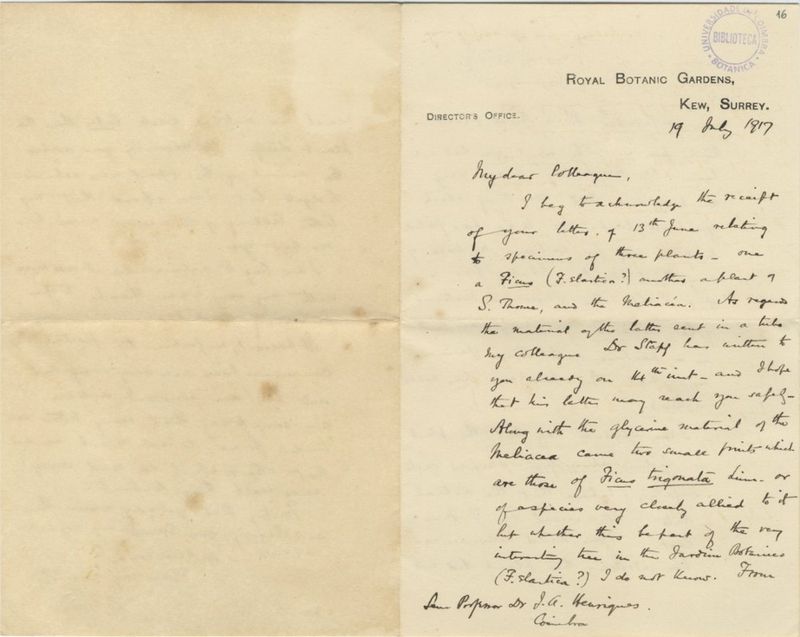 16
UNIVERSIDADE DE COIMBRA
BIBLIOTECA
BOTANICA
ROYAL BOTANIC GARDENS,
KEW, SURREY.
DIRECTOR'S OFFICE.
19 July 1917
My dear Colleague,
I beg to acknowledge the receipt
of your letter of 13th June relating
to specimens of three plants - one
a Ficus (F. elastica?) another a plant of
S. Thome, and the Meliacea. As regards
the material of the latter sent in a tube
my colleague Dr Stapf has written to
you already on 14th inst - and I hope
that his letter may reach you safely -
Along with the glycerine material of the
Meliacea came two small fruits which
are those of Ficus trigonata Linn. or
of a species very closely allied to it
but whether this be part of the very
interesting tree in the Jardim Botanico
(F. elastica?) I do not know. From
Professor Dr J. A. Henriques.
Coimbra